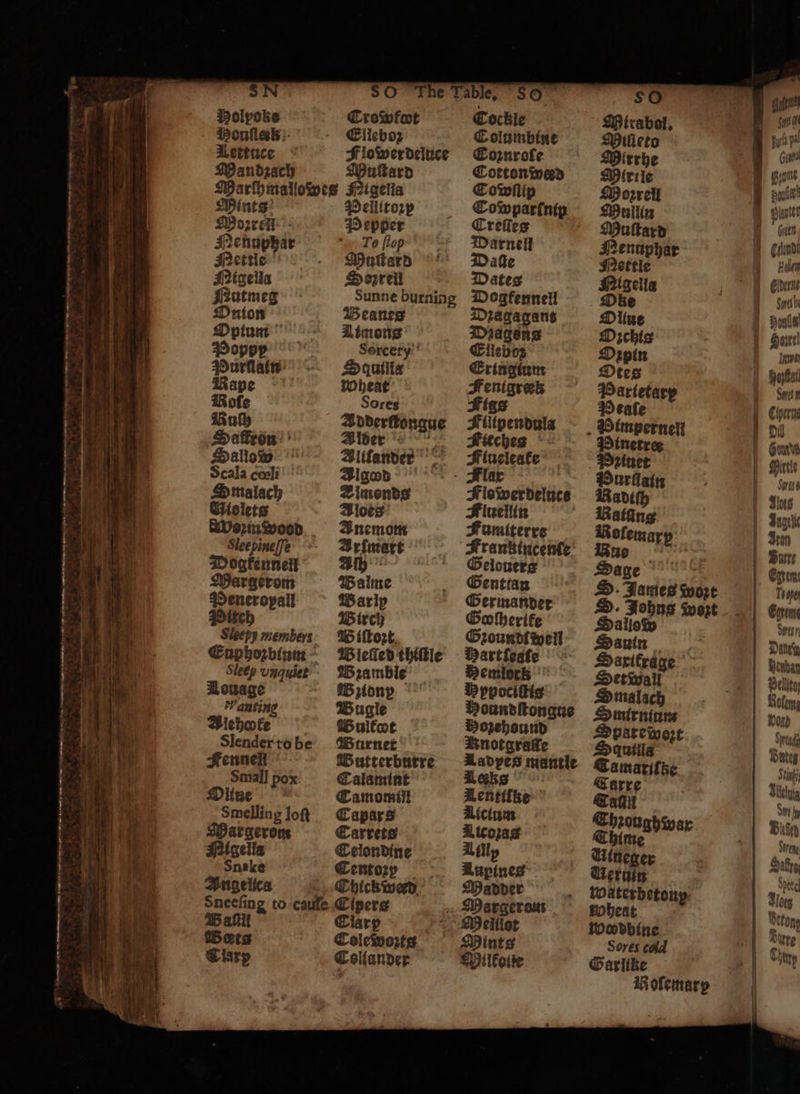 SN
SO The Table, SO
SO
Holyoke
Honsleek
Lettuce
Mandzach
Marshmallowes
Mints
Mozrell
Nenuphar
Nettle
Nigella
Nutmeg
Onion
Opium
Poppy
Purslain
Rape
Rose
Rush
Saffron
Sallow
Scala cœli
Smalach
Violets
Wozmwood
Sleepinesse
Dogfennell
Margerom
Peneroyall
Pitch
Sleepy members
Euphozbium
Sleep vnquiet
Louage
Wanting
Alehoofe
Slender to be
Fennell
Small pox
Oliue
Smelling lost
Margerom
Nigella
Snake
Angelica
Sneesing to cause
Basill
Beets
Clary
Crowfoot
Elleboz
Flowerdeluce
Mustard
Nigella
Pellitozy
Pepper
To stop
Mustard
Sozrell
Sunne burning
Beanes
Limons
Sorcery
Squilla
Wheat
Sores
Adderstongue
Alder
Alisander
Algood
Almonds
Aloes
Anemom
Arsmart
Ash
Balme
Barly
Birch
Bistozt
Blessed thistle
Bramble
Bziony
Bugle
Bulfoot
Burnet
Butterburre
Calamint
Camomill
Capars
Carrets
Celondine
Centozy
Chickweed
Cipers
Clary
Colewozts
Coliander
Cockle
Columbine
Coznrose
Cottonweed
Cowslip
Cowparsnip
Cresses
Darnell
Dasie
Dates
Dogfennell
Dragagant
Dragens
Elleboz
Eringium
Fenigreek
Figs
Filipendula
Fitches
Fiueleafe
Flax
Flowerdeluce
Fluellin
Fumiterre
Frankincense
Gelouers
Gentian
Germander
Goosherike
Groundswell
Hartsease
Hemlock
Hypocistis
Houndstongue
Hozehound
Knotgrasse
Ladyes mantle
Leeks
Lentilke
Licium
Licozas
Lilly
Lupines
Madder
Margerom
Melilot
Mints
Milfoile
Mirabol.
Misleto
Mirrhe
Mirtle
Mozrell
Mullin
Mustard
Nenuphar
Nettle
Nigella
Oke
Oliue
Ozchis
Ozpin
Otes
Parietary
Pease
Pimpernell
Pinetree
Pziuet
Purslain
Radish
Raisins
Rosemary
Rue
Sage
S. James wozt
S. Johns wozt
Sallow
Sauin
Saxifrage
Setwall
Smalach
Smirnium
Sparewozt
Squilla
Tamariske
Tarre
Tasil
Thzoughwax
Thime
Vineger
Veruin
Waterbetony
Wheat
Woodbine
Sores cold
Garlike
Rosemary